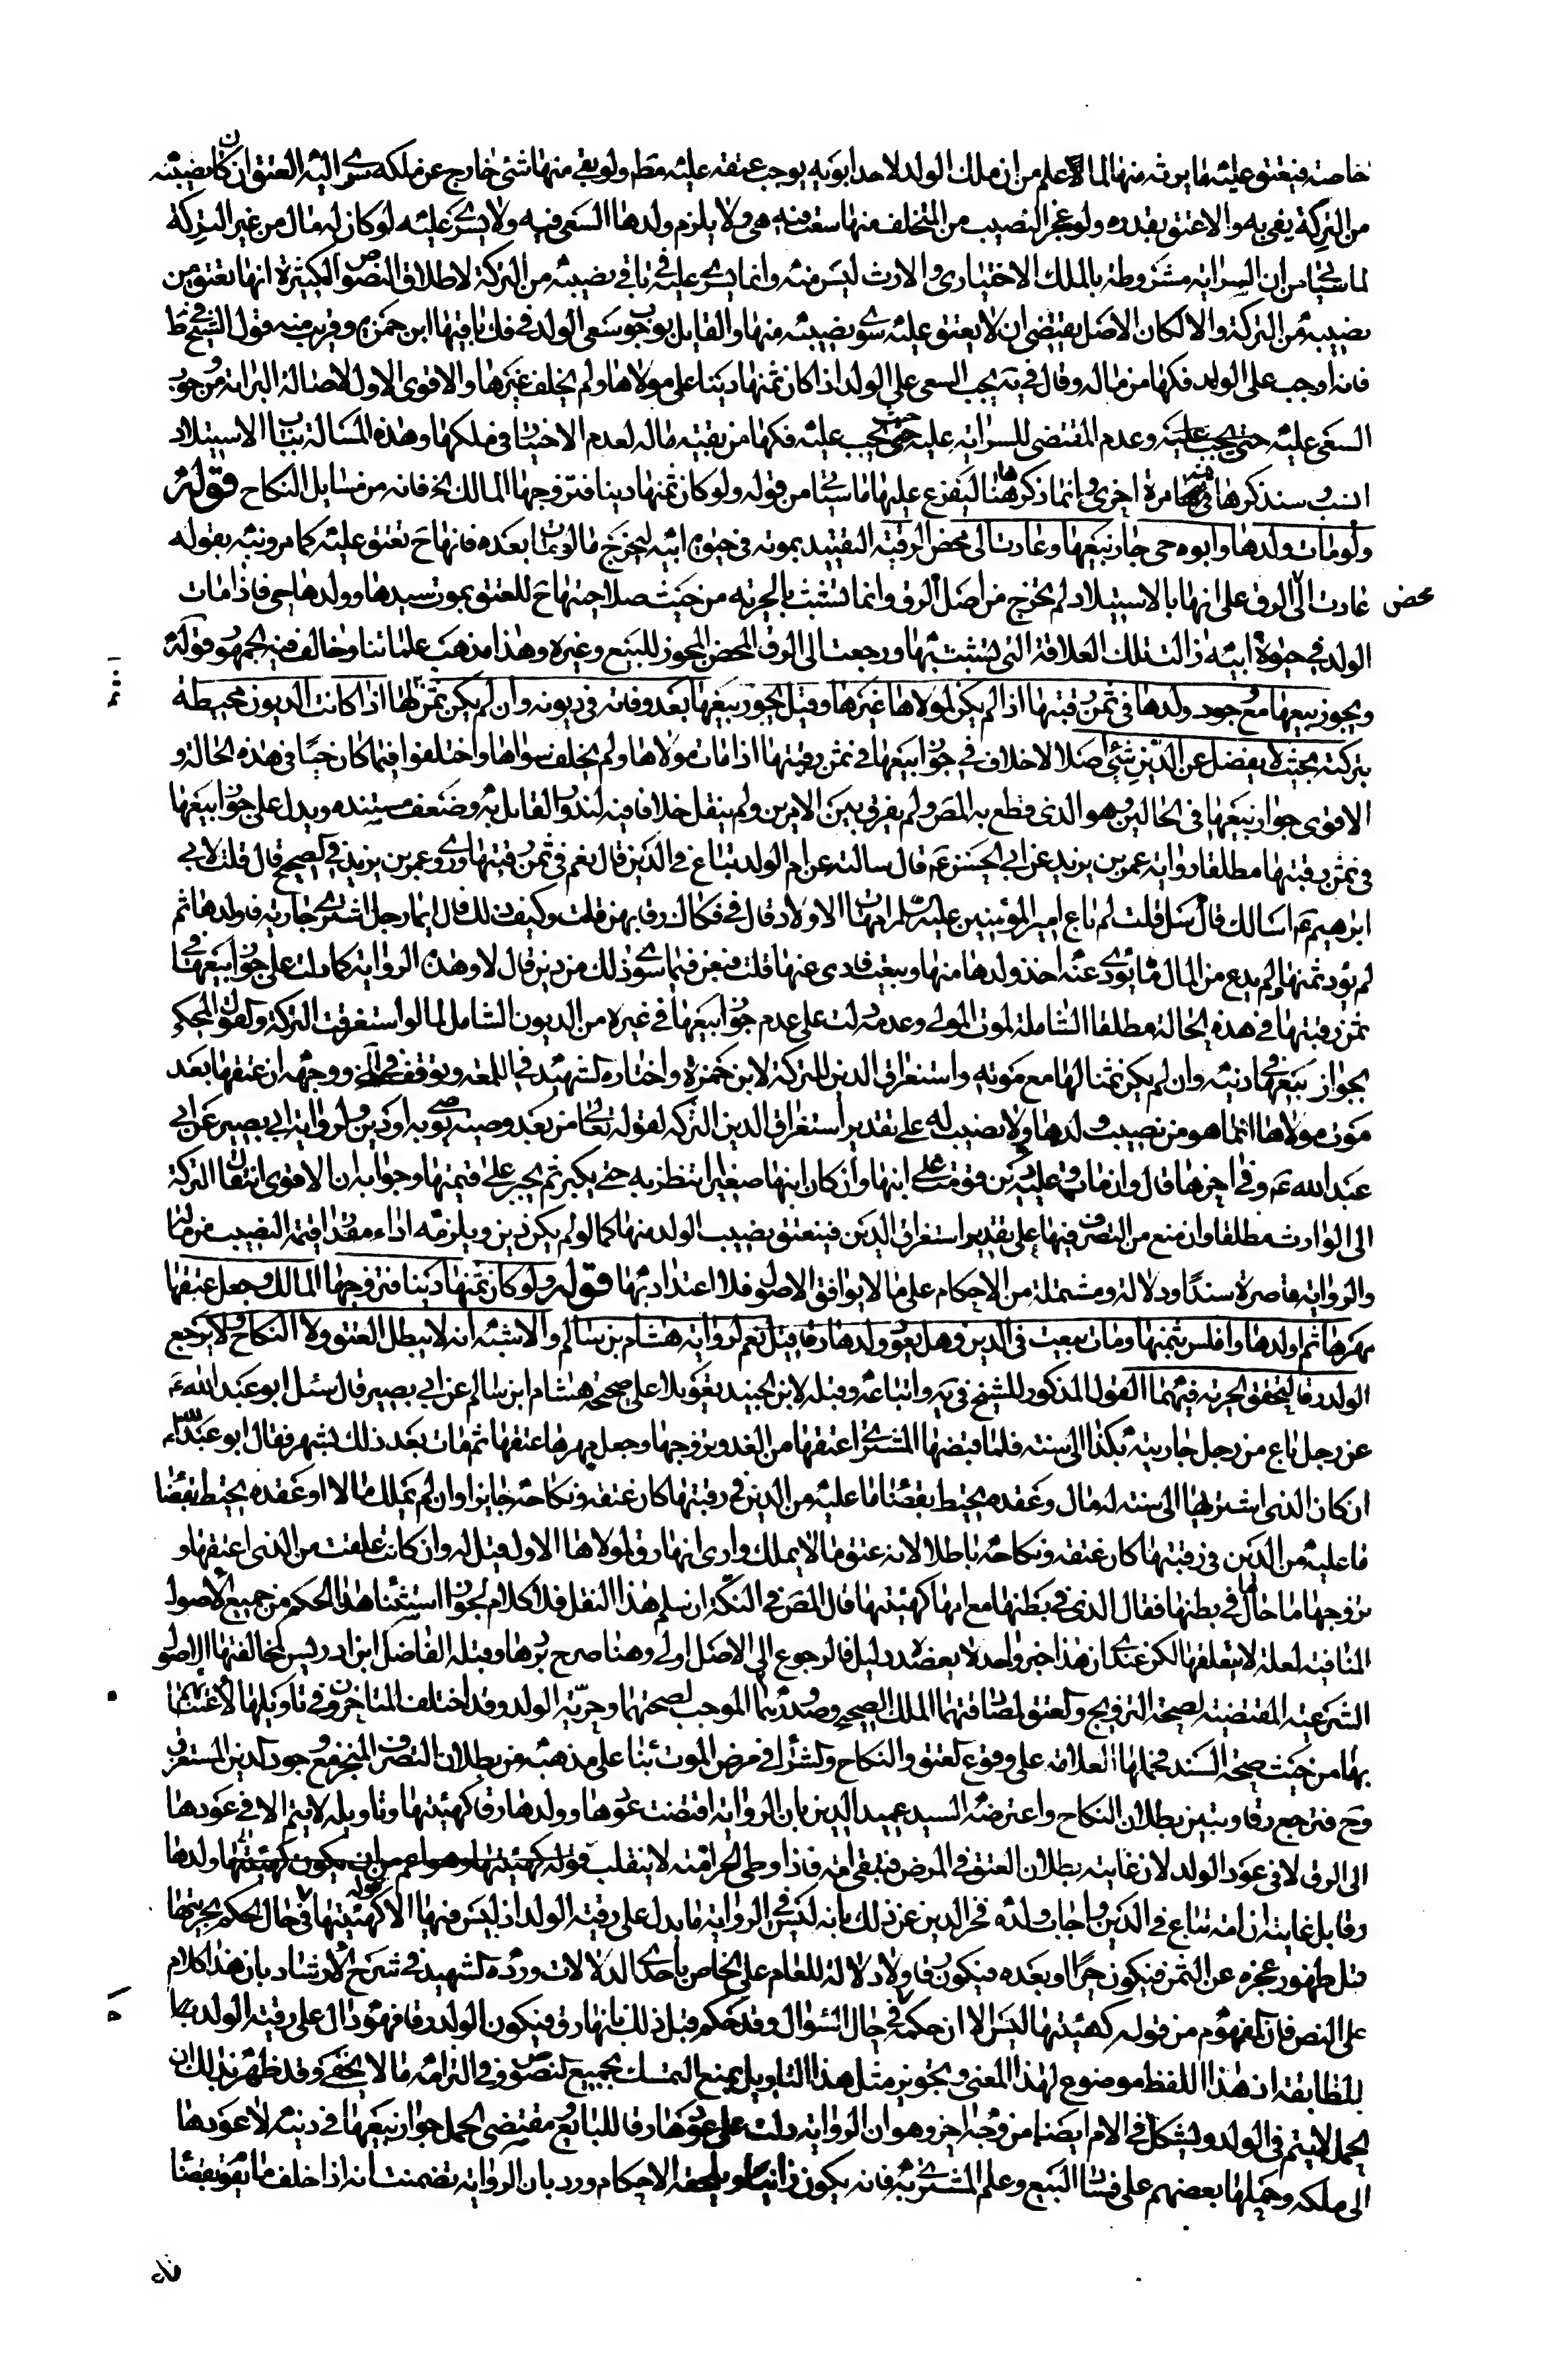 خاصة فيعتق عليه ما يرثه منها لما علم من ان ملك الولد لاحد ابويه يوجب عتقه عليه مط ولو بقي منها شئ خارج عن ملكه سرى اليه العتق ان كان نصيبه
من التركة يفي به والا عتق بقدره ولو عجز النصيب من المتخلف منها سعت فيه هي ولا يلزم ولدها السعى فيه ولا يسرى عليه لو كان له مال من غير التركة
لما سيأتي من ان السراية مشروطة بالملك الاختيارى والارث ليس منه وانما يسرى عليه في باقي نصيبه من التركة لاطلاق النصوص الكثيرة انها تعتق من
نصيبه من التركة والا لكان الاصل يقتضى ان لا يعتق عليه سوى نصيبه منها والقايل بوجوب سعى الولد في فك باقيها ابن حمزة وقريب منه قول الشيخ في ط
فانه اوجب على الولد فكها من ماله وقال في يه يجب السعى على الولد اذا كان ثمنها دينا على مولاها ولم يخلف غيرها والاقوى الاول لاصالة البراءة من وجوب
السعى عليه وعدم المقتضى للسراية عليه حتى يجب عليه فكها من بقية ماله لعدم الاختيار في ملكها وهذه المسالة بباب الاستيلاد
انسب وسنذكرها فيه مرة اخرى وانما ذكرها هنا ليفرع عليها ما سيأتي من قوله ولو كان ثمنها دينا فتزوجها المالك الخ فانه من مسايل النكاح قوله
ولو مات ولدها وابوه حى جاز بيعها وعادت الى محض الرقية التقييد بموته في حيوة ابيه ليخرج ما لو مات بعده فانها ح تعتق عليه كما مر ونبه بقوله
عادت الى محض الرق على انها بالاستيلاد لم تخرج من اصل الرق وانما تشبثت بالحرية من حيث صلاحيتها ح للعتق بموت سيدها وولدها حى فاذا مات
الولد في حيوة ابيه زالت تلك العلاقة التى تشبثت بها ورجعت الى الرق المحض المجوز للبيع وغيره وهذا مذهب علمائنا وخالف فيه الجمهور قوله
ويجوز بيعها مع وجود ولدها في ثمن رقبتها اذا لم يكن لمولاها غيرها وقيل يجوز بيعها بعد وفاته في ديونه وان لم يكن ثمنا لها اذا كانت الديون محيطة
بتركته بحيث لا يفضل عن الدين شئ اصلا لا خلاف في جواز بيعها في ثمن رقبتها اذا مات مولاها ولم يخلف سواها واختلفوا فيما كان حيا في هذه الحالة و
الاقوى جواز بيعها في الحالين وهو الذى قطع به المص ولم يفرق بين الامرين ولم ينقل خلافا فيه لندور القائل به وضعف مستنده ويدل على جواز بيعها
في ثمن رقبتها مطلقا رواية عمر بن يزيد عن ابي الحسن ع قال سالته عن ام الولد تباع في الدين قال نعم في ثمن رقبتها وروى عمر بن يزيد في الصحيح قال قلت لابي
ابرهيم ع اسالك قال سل قلت لم باع امير المؤمنين عليه السلام امهات الاولاد قال في فكاك رقابهن قلت وكيف ذلك قال ايما رجل اشترى جارية فاولدها ثم
لم يؤد ثمنها ولم يدع من المال ما يؤدى عنه اخذ ولدها منها وبيعت فادى عنها قلت فيبعن فيما سوى ذلك من دين قال لا وهذه الرواية كما دلت على جواز بيعها في
ثمن رقبتها في هذه الحالة مطلقا الشاملة لموت المولى وعدمه دلت على عدم جواز بيعها في غيره من الديون الشامل لما لو استغرقت التركة والقول المحكى
بجواز بيعها في دينه وان لم يكن ثمنا لها مع موته واستغراق الدين للتركة لابن حمزة واختاره الشهيد في اللمعة وتوقف في ووجهه ان عتقها بعد
موت مولاها انما هو من نصيب ولدها ولا نصيب له على تقدير استغراق الدين التركة لقوله تعالى من بعد وصية يوصى بها او دين ولرواية ابي بصير عن ابي
عبد الله ع وفي اخرها قال وان مات وعليه دين قومت على ابنها وان كان ابنها صغيرا انتظر به حتى يكبر ثم يجبر على قيمتها وجوابه ان الاقوى انتقال التركة
الى الوارث مطلقا وان منع من التصرف فيها على تقدير استغراق الدين فينعتق نصيب الولد منها كما لو لم يكن دين ويلزمه اداء مقدار قيمة النصيب من ماله
والرواية قاصرة سندا ودلالة ومشتملة من الاحكام على ما لا يوافق الاصول فلا اعتداد بها قوله ولو كان ثمنها دينا فتزوجها المالك وجعل عتقها
مهرها ثم اولدها وافلس بثمنها ومات بيعت في الدين وهل يعود ولدها رقا قيل نعم لرواية هشام بن سالم والاشبه انه لا يبطل العتق ولا النكاح ولا يرجع
الولد رقا لتحقق الحرية فيهما القول المذكور للشيخ في يه واتباعه وقبله لابن الجنيد تعويلا على صحيحة هشام ابن سالم عن ابي بصير قال سئل ابو عبد الله ع
عن رجل باع من رجل جارية بكذا الى سنة فلما قبضها المشترى اعتقها من الغد وتزوجها وجعل مهرها عتقها ثم مات بعد ذلك بشهر فقال ابو عبد الله ع
ان كان الذى اشتراها الى سنة له مال وعقده يحيط بقضاء ما عليه من الدين في رقبتها كان عتقه ونكاحه جايزا وان لم يملك مالا او عقده يحيط بقضاء
ما عليه من الدين في رقبتها كان عتقه ونكاحه باطلا لانه عتق ما لا يملك وارى انها رق لمولاها الاول قيل له وان كانت علقت من الذى اعتقها و
تزوجها ما حال ما في بطنها فقال الذى في بطنها مع امها كهيئتها قال المص في النكت ان سلم هذا النقل فلا كلام لجواز استثناء هذا الحكم من جميع الاصول
المنافية لعلة لا نتعقلها لكن عندى ان هذا خبر واحد لا يعضده دليل فالرجوع الى الاصل اولى وهنا صرح بردها وقبله الفاضل ابن ادريس لمخالفتها الاصول
الشرعية المقتضية لصحة التزويج والعتق لمصادفتهما الملك الصحيح وصدورهما الموجب لصحتهما وحرية الولد وقد اختلف المتاخرون في تاويلها لاعتنائهم
بها من حيث صحة السند فحملها العلامة على وقوع العتق والنكاح والشراء في مرض الموت بناء على مذهبه من بطلان التصرف المنجز مع وجود الدين المستغرق
وح فترجع رقا ويتبين بطلان النكاح واعترضه السيد عميد الدين بان الرواية اقتضت عودها وولدها رقا كهيئتها وتاويله لا يتم الا في عودها
الى الرق لا في عود الولد لان غايته بطلان العتق في المرض فتبقى امة فاذا وطى الحر امته لا ينقلب ولدها
رقا بل غايته ان امه تباع في الدين واجاب ولده فخر الدين عن ذلك بانه ليس في الرواية ما يدل على رقية الولد اذ ليس فيها الا قوله كهيئتها في حال الحكم بحريتها
قبل ظهور عجزه عن الثمن فيكون حرا او بعده فيكون رقا ولا دلالة للعام على الخاص باحدى الدلالات ورده الشهيد في شرح الارشاد بان هذا كلام
على النص فان المفهوم من قوله كهيئتها ليس الا ان حكمه في حال السؤال وقد حكم قبل ذلك بانها رق فيكون الولد رقا فهو دال على رقية الولد
بالمطابقة ان هذا اللفظ موضوع لهذا المعنى وتجويز مثل هذا التاويل يمنع التمسك بجميع النصوص وفي التزامه ما لا يخفى وقد ظهر بذلك ان
الحمل لا يتم في الولد ويشكل في الام ايضا من وجه اخر وهو ان الرواية دلت على عودها رقا للبايع ومقتضى الحمل جواز بيعها في دينه لا عودها
الى ملكه وحملها بعضهم على فساد البيع وعلم المشترى به فانه يكون زانيا ويلحقه الاحكام ورد بان الرواية تضمنت انه اذا خلف ما يقوم بقضاء